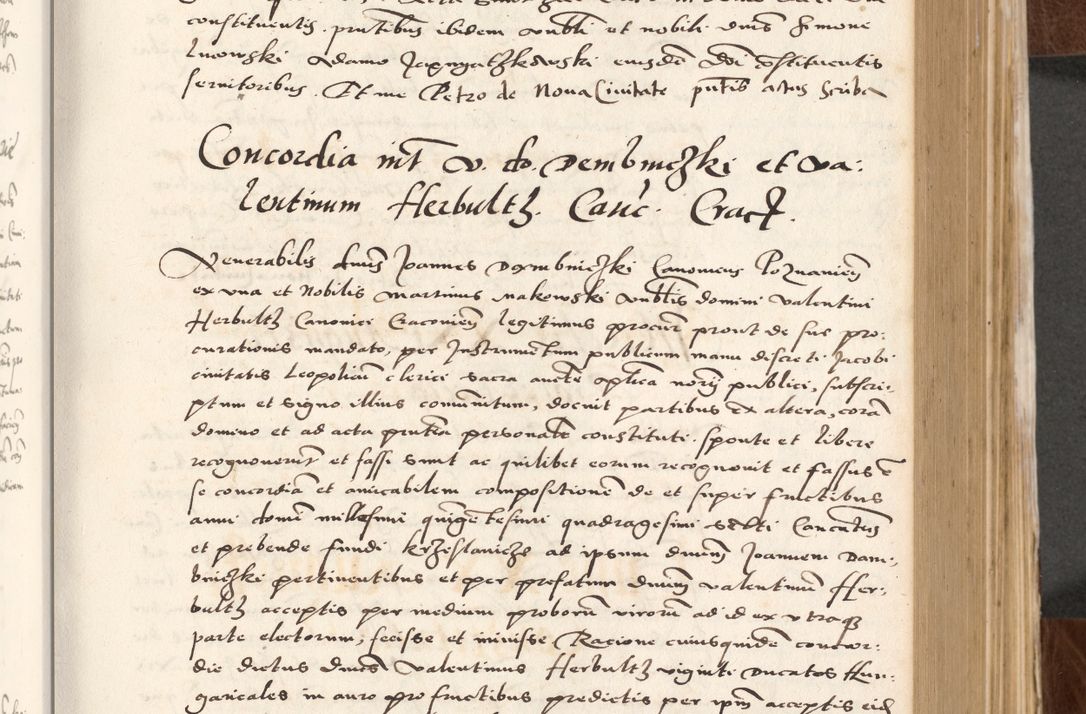 constituentis . pntibus ibidem nobli et nobili dnis Simone
Lwowski Adamo eiusdē dni ostituentis
servitoribus . Et me Petro de Nova Civitate pntis actus scriba
Concordia int v. do. Dembniczki et Va:
lentinum Herbultz. Canc. Crac.
Venerabilis dnus Joannes Dembniczki Canonicus Poznanien
ex vna et Nobilis Martinus Makowski nobilis domini Valentini
Herbultz Canonici Cracovien legitimus procur prout de sue pro:
curationis mandato, per Instrumentum publicum manu discreti Jacobi
civitatis Leopolien clerici sacra aucte aplica norij publici, subscri:
ptum et signo illius comunitum, docuit partibus ex altera, corā
domino et ad acta pntia personalr constituti . sponte et libere
recognoverūt et fassi sunt ac quilibet eorum recognovit et fassus ē
se concordiā et amicabilem compositionē de et super fructibus
anni domi millesimi quigetesimi quadragesimi Canctus
et prebende fundi krzeslaviche ad ipsum dnum Joannem Dam:
bniczki pertinentibus et per prefatum dnum Valentinū Her:
bultz acceptis per medium proborū virorū ad id ex vtraq
parte electorum, fecisse et inivisse Racione cuiusquidē concor:
die dictus dnus Valentinus Herbultz viginti ducatos Hun:
garicales in auro pro fructibus predictis per ipm acceptis eid